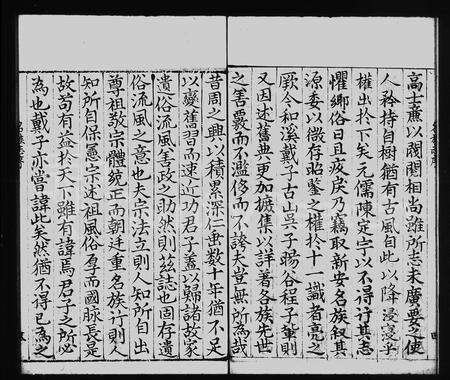 高士廉以閥閱相尚雖所志未廣要之使
人矜持自樹猶有古風自此以降浸浸乎
權出於下矣元儒陳定宇以不得行其志
懼鄉俗日且疲戾乃竊取新安名族叙其
源委以微存昭鑒之權於十一識者亮之
厥令和溪戴子古山吳子弱谷程子輩則
又因述舊典更加摭集以詳著各族先世
之善覈而不濫侈而不誇夫豈無所為哉
昔周之興以積累深仁虽数十年猶不足
以變舊習而速近功君子盖以歸諸故家
遺俗流風善政之助然則茲誌也固存遺
俗流風之意也夫宗法立則人知所自出
尊祖敬宗體統正而朝廷重名族行則人
知所自保冕宗述祖風俗厚而國脉長是
故苟有益於天下雖有諱焉君子之所必
為也戴子亦嘗諱此矣然猶不得已為之